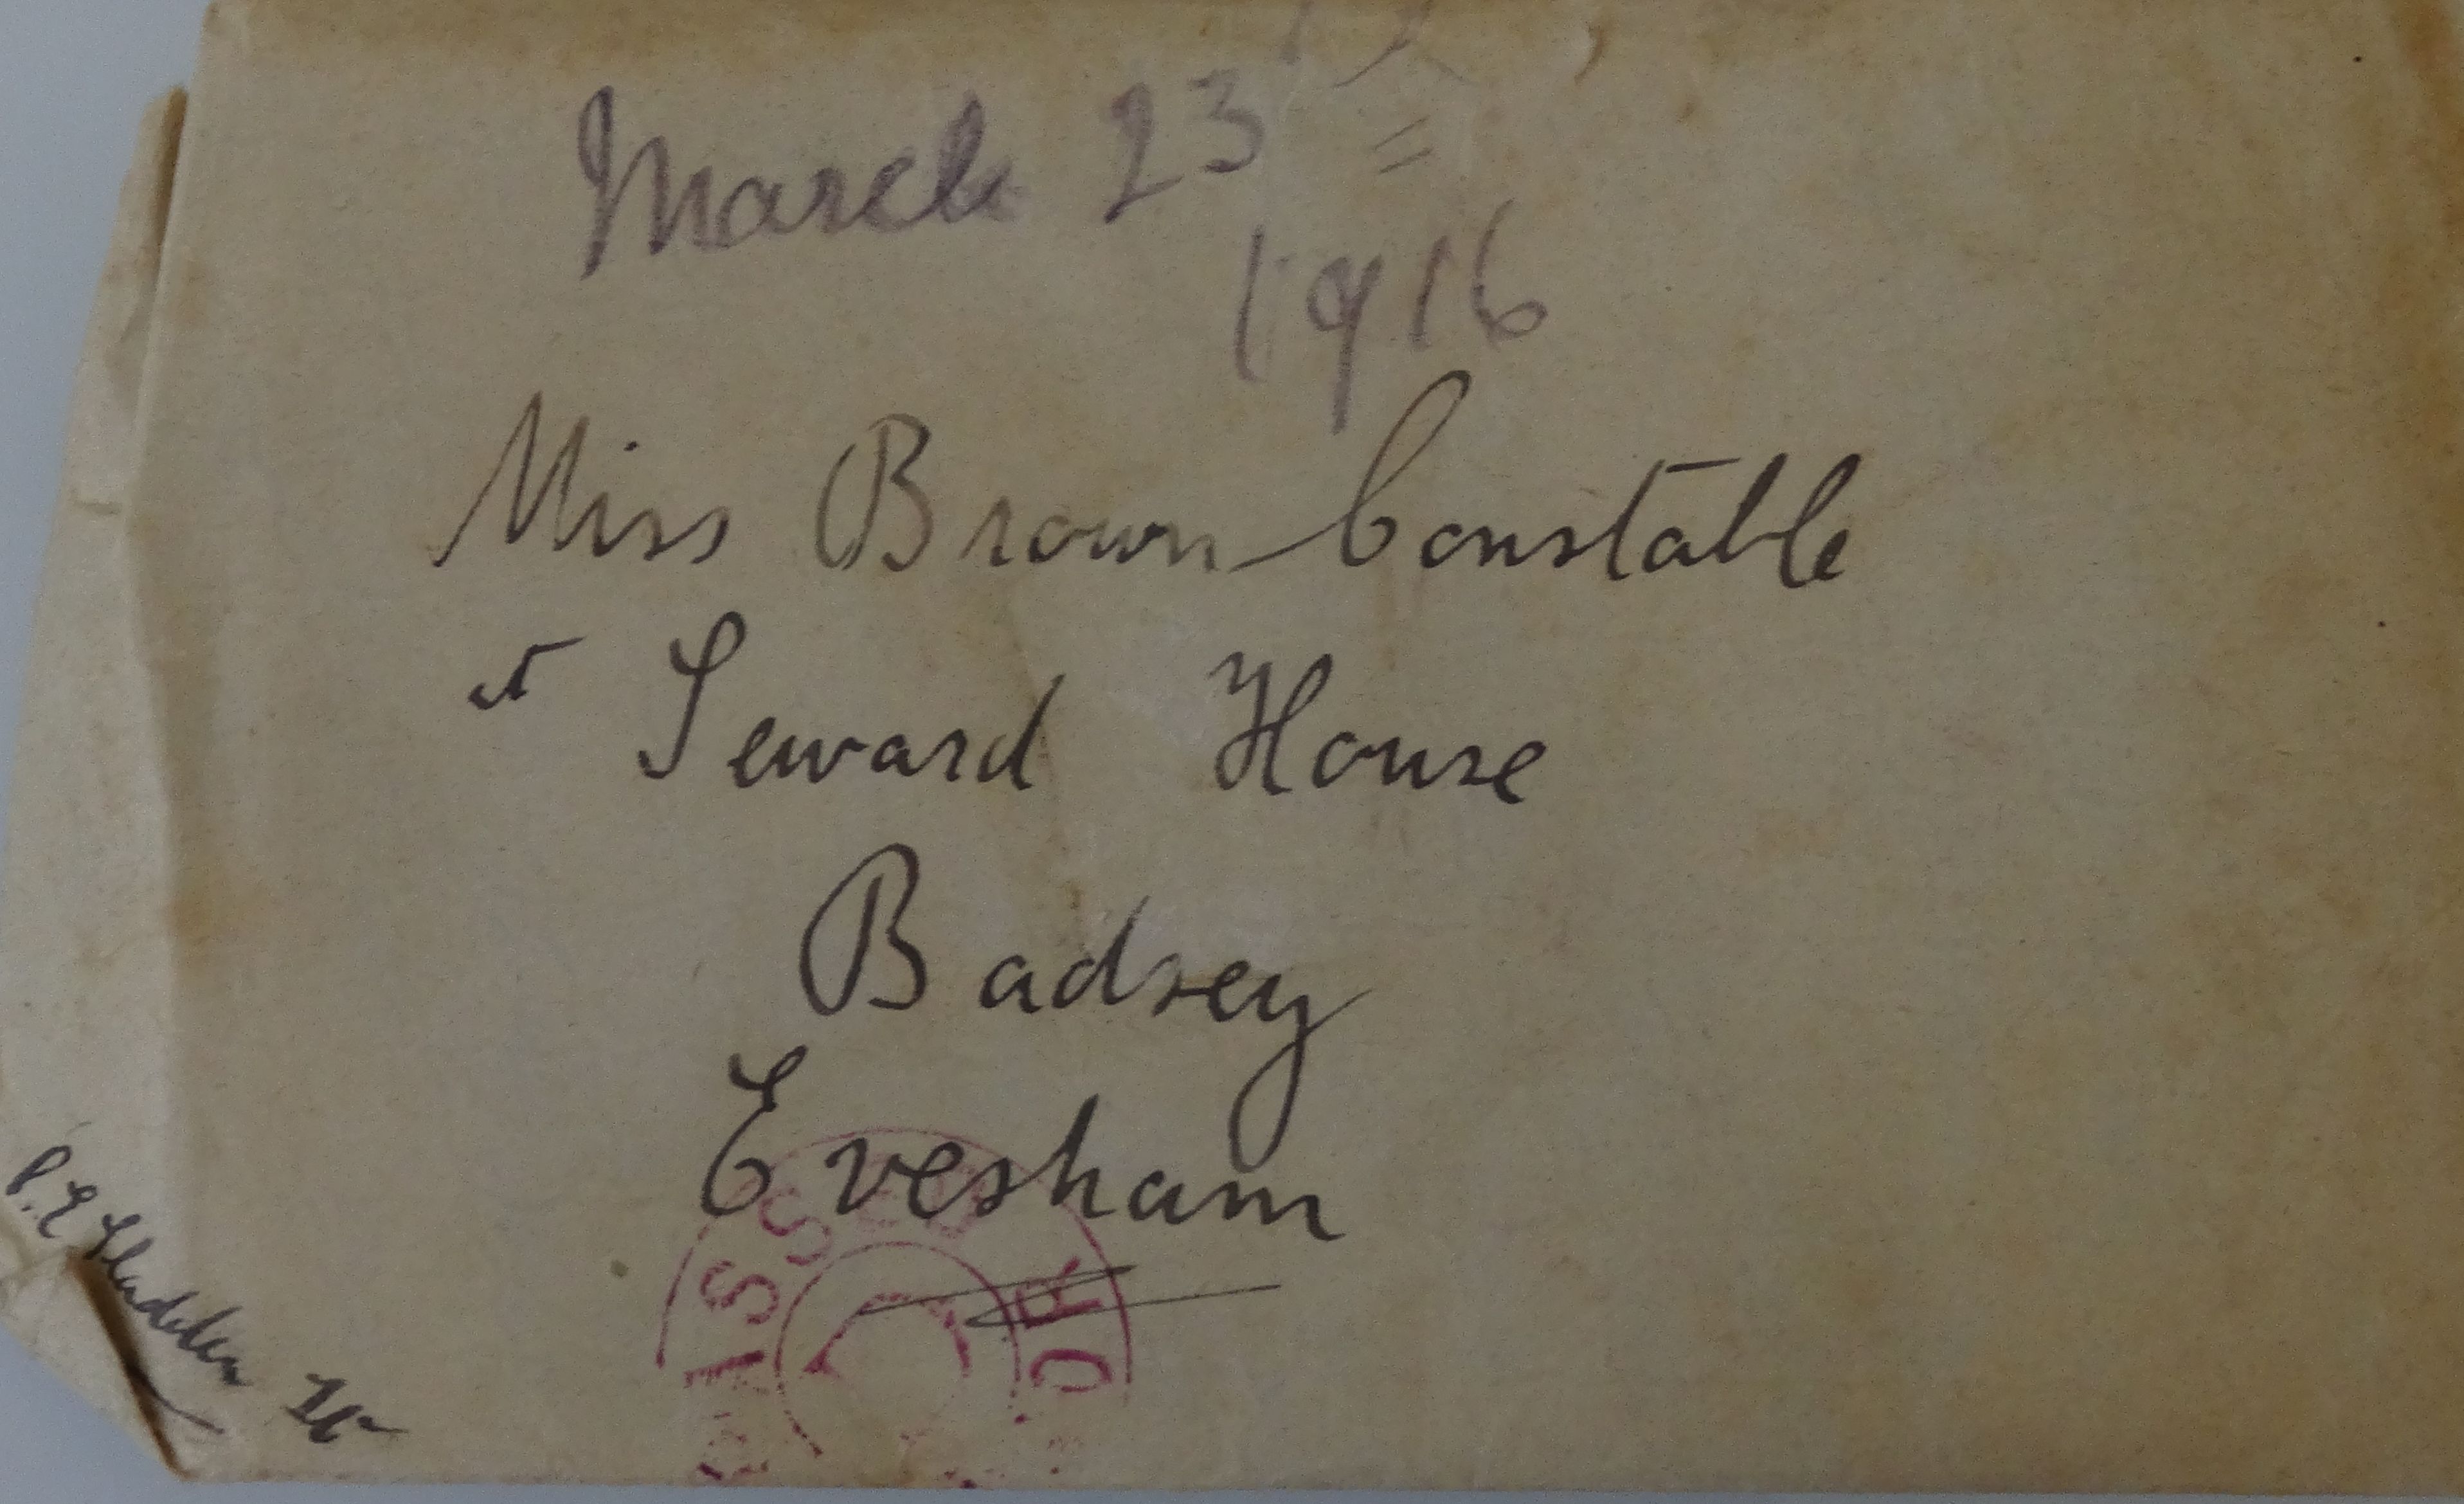 March 23
1916
Miss Brown Constable
at Seward House
Badsey
Evesham
C. E. Sladden Lt
PASSED
OR